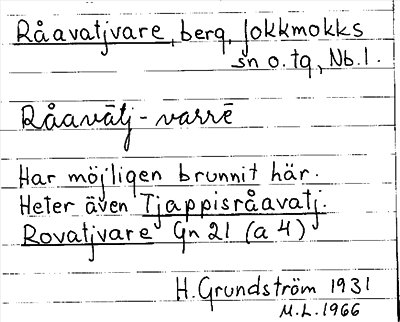 Råavatjvare, berg, Jokkmokks
sn o. tg, Nb. l.
Råavātj-varrē
Har möjligen brunnit här.
Heter även Tjappisråavatj.
Rovatjvare Gn 21 (a 4)
H. Grundström 1931
M.L. 1966